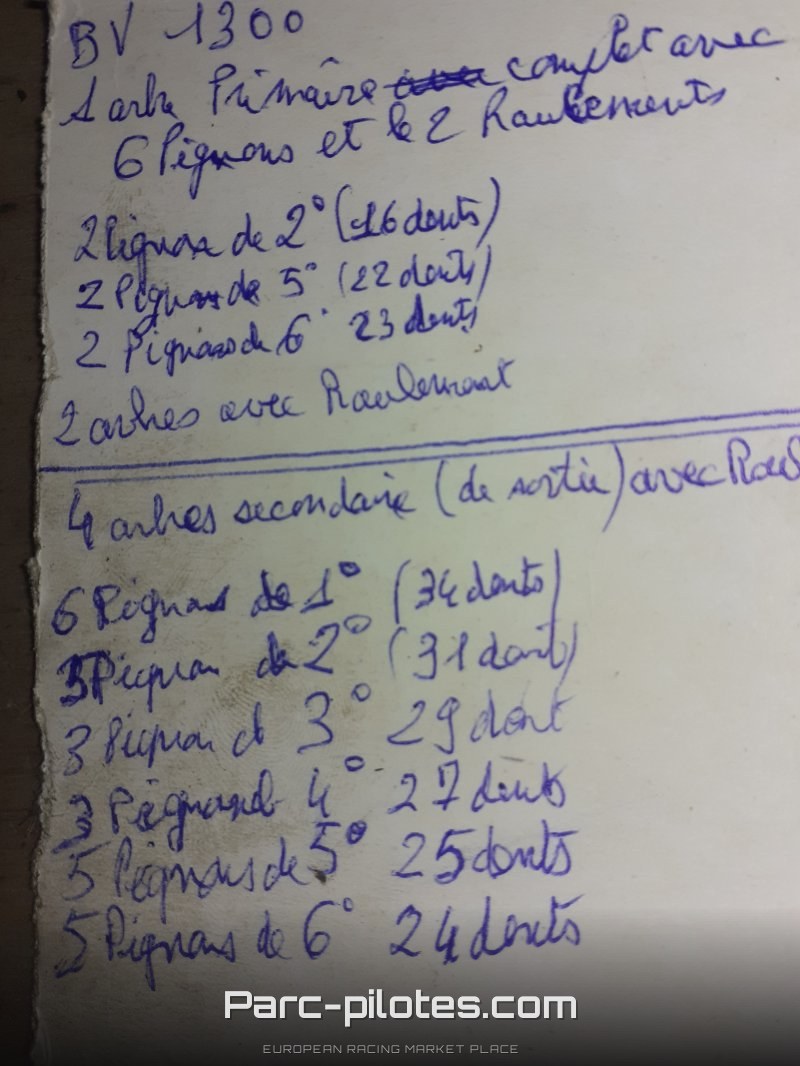 BV 1300
1 arbre Primaire complet avec
6 Pignons et le 2 Roulements
2 Pignons de 2° (16 dents)
2 Pignons de 5° (22 dents)
2 Pignons de 6° 23 dents
2 arbres avec Roulement
4 arbres secondaire (de sortie) avec Roul
6 Pignons de 1° (34 dents)
3 Pignon de 2° (31 dent)
3 Pignon d 3° 29 dent
3 Pignons d 4° 27 dents
5 Pignons de 5° 25 dents
5 Pignons de 6° 24 dents
Parc-pilotes.com
EUROPEAN RACING MARKET PLACE